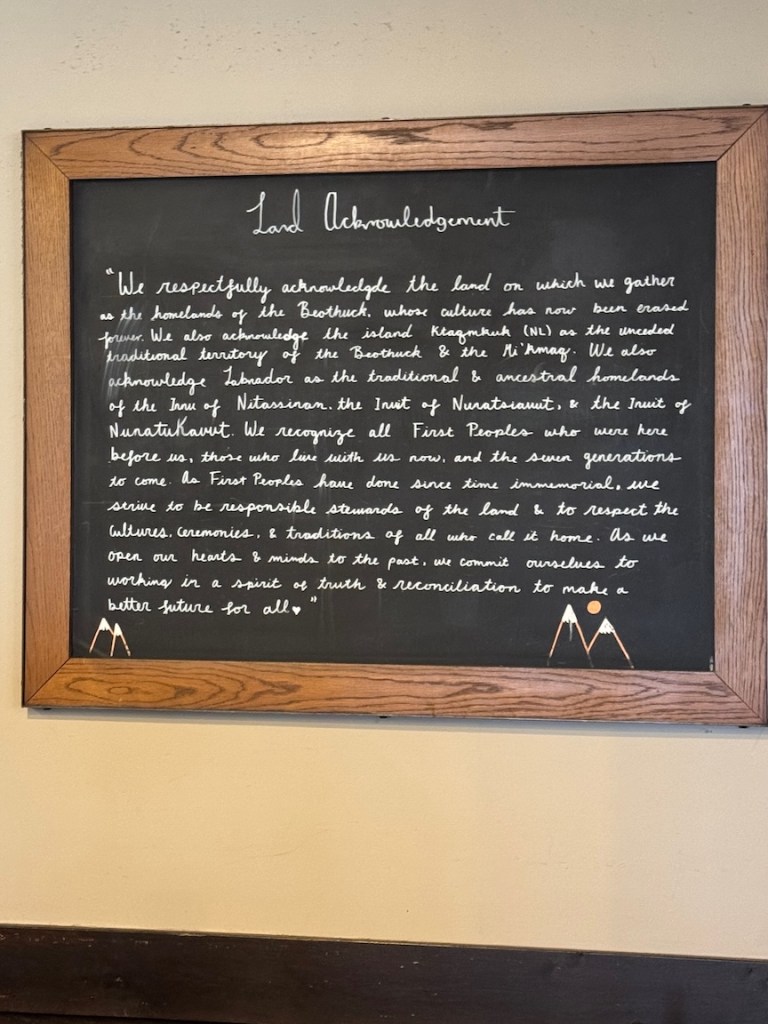 Land Acknowledgement
"We respectfully acknowledgde the land on which we gather
as the homelands of the Beothuck, whose culture has now been erased
forever. We also acknowledge the island Ktaqmkuk (NL) as the unceded
traditional territory of the Beothuck & the Mi'kmaq. We also
acknowledge Labrador as the traditional & ancestral homelands
of the Innu of Nitassinan, the Inuit of Nunatsiavut, & the Inuit of
NunatuKavut. We recognize all First Peoples who were here
before us, those who live with us now, and the seven generations
to come. As First Peoples have done since time immemorial, we
strive to be responsible stewards of the land & to respect the
cultures, ceremonies, & traditions of all who call it home. As we
open our hearts & minds to the past, we commit ourselves to
working in a spirit of truth & reconciliation to make a
better future for all♥"